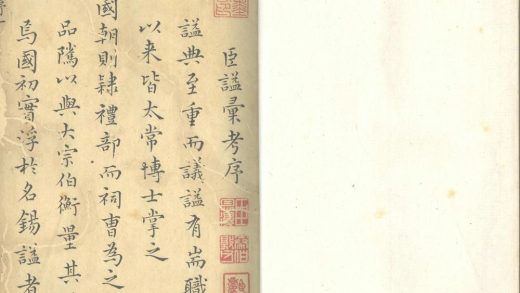 臣謚彙考序
謚典至重而議謚有耑職
以来皆太常博士掌之
國朝則隸禮部而祠曺為之
品隲以與大宗伯衡量其
焉國初實浮於名錫謚者